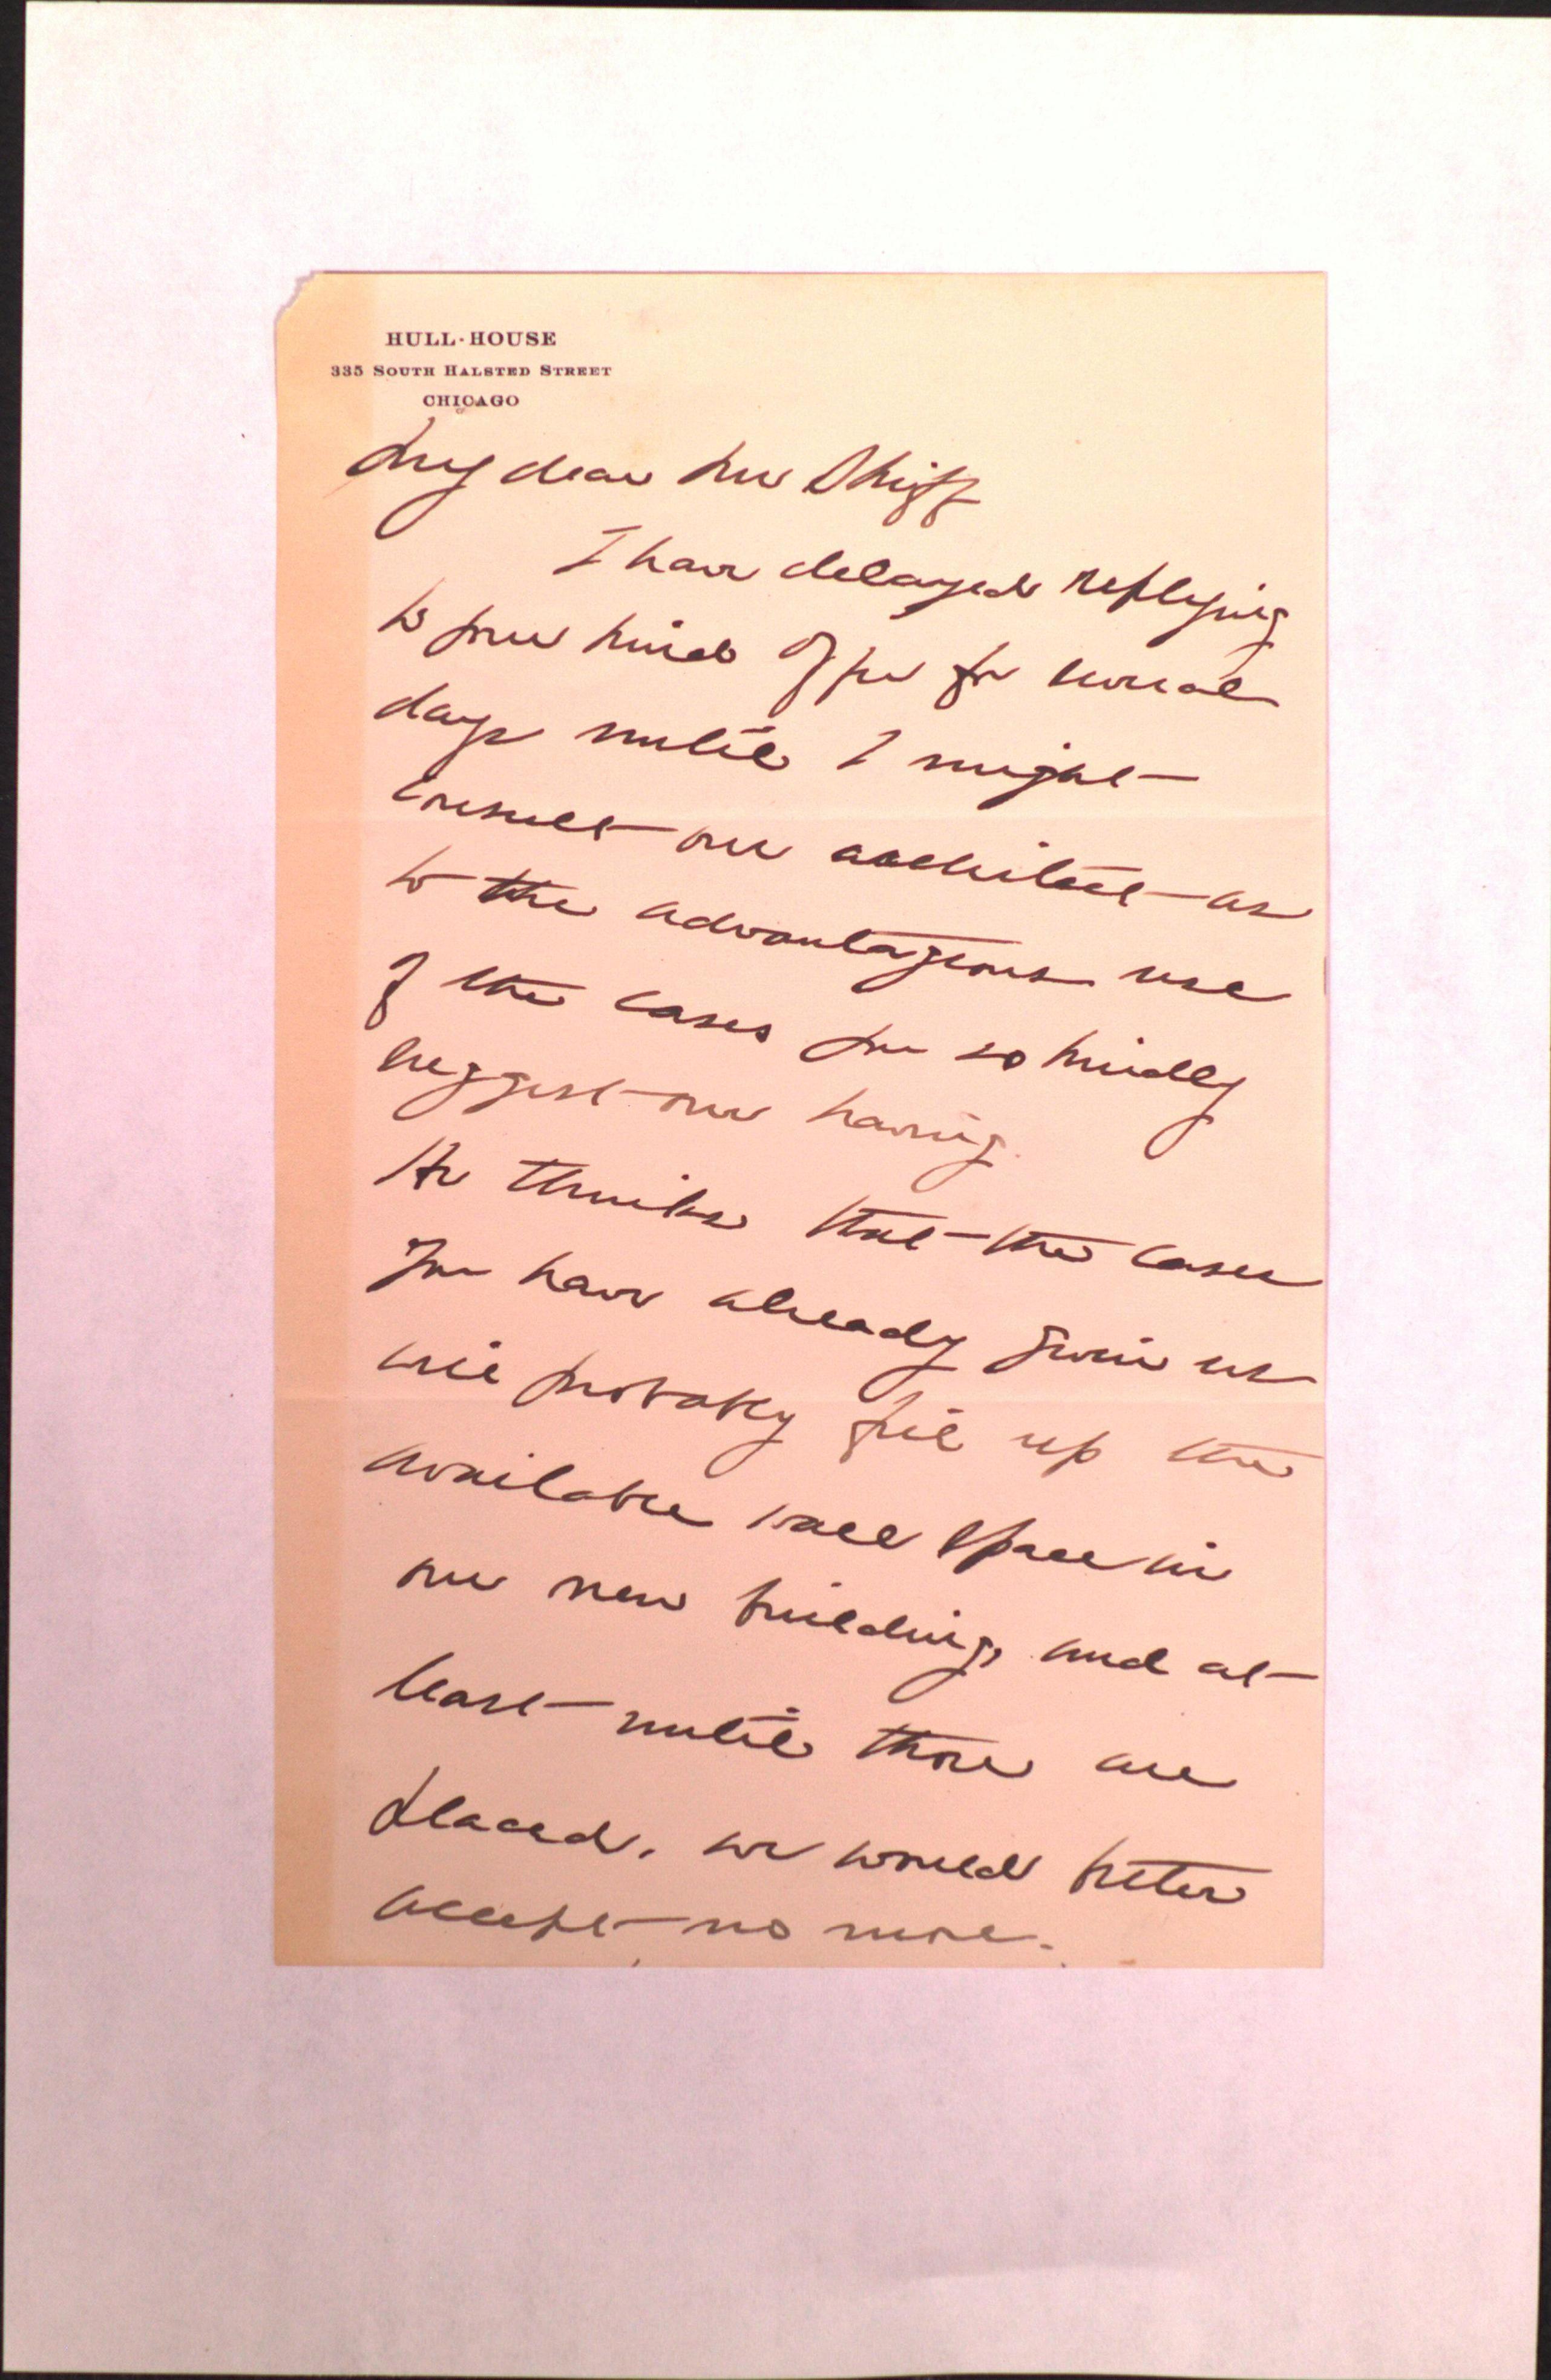 HULL-HOUSE
335 SOUTH HALSTED STREET
CHICAGO
My dear Mr Skiff
I have delayed replying
to your kind offer for several
days until I might
consult our architect as
to the advantageous use
of the cases you so kindly
suggest our having.
He thinks that the cases
you have already given us
will probably fill up the
available wall space in
our new building, and at
least until those are
placed, we would better
accept no more.